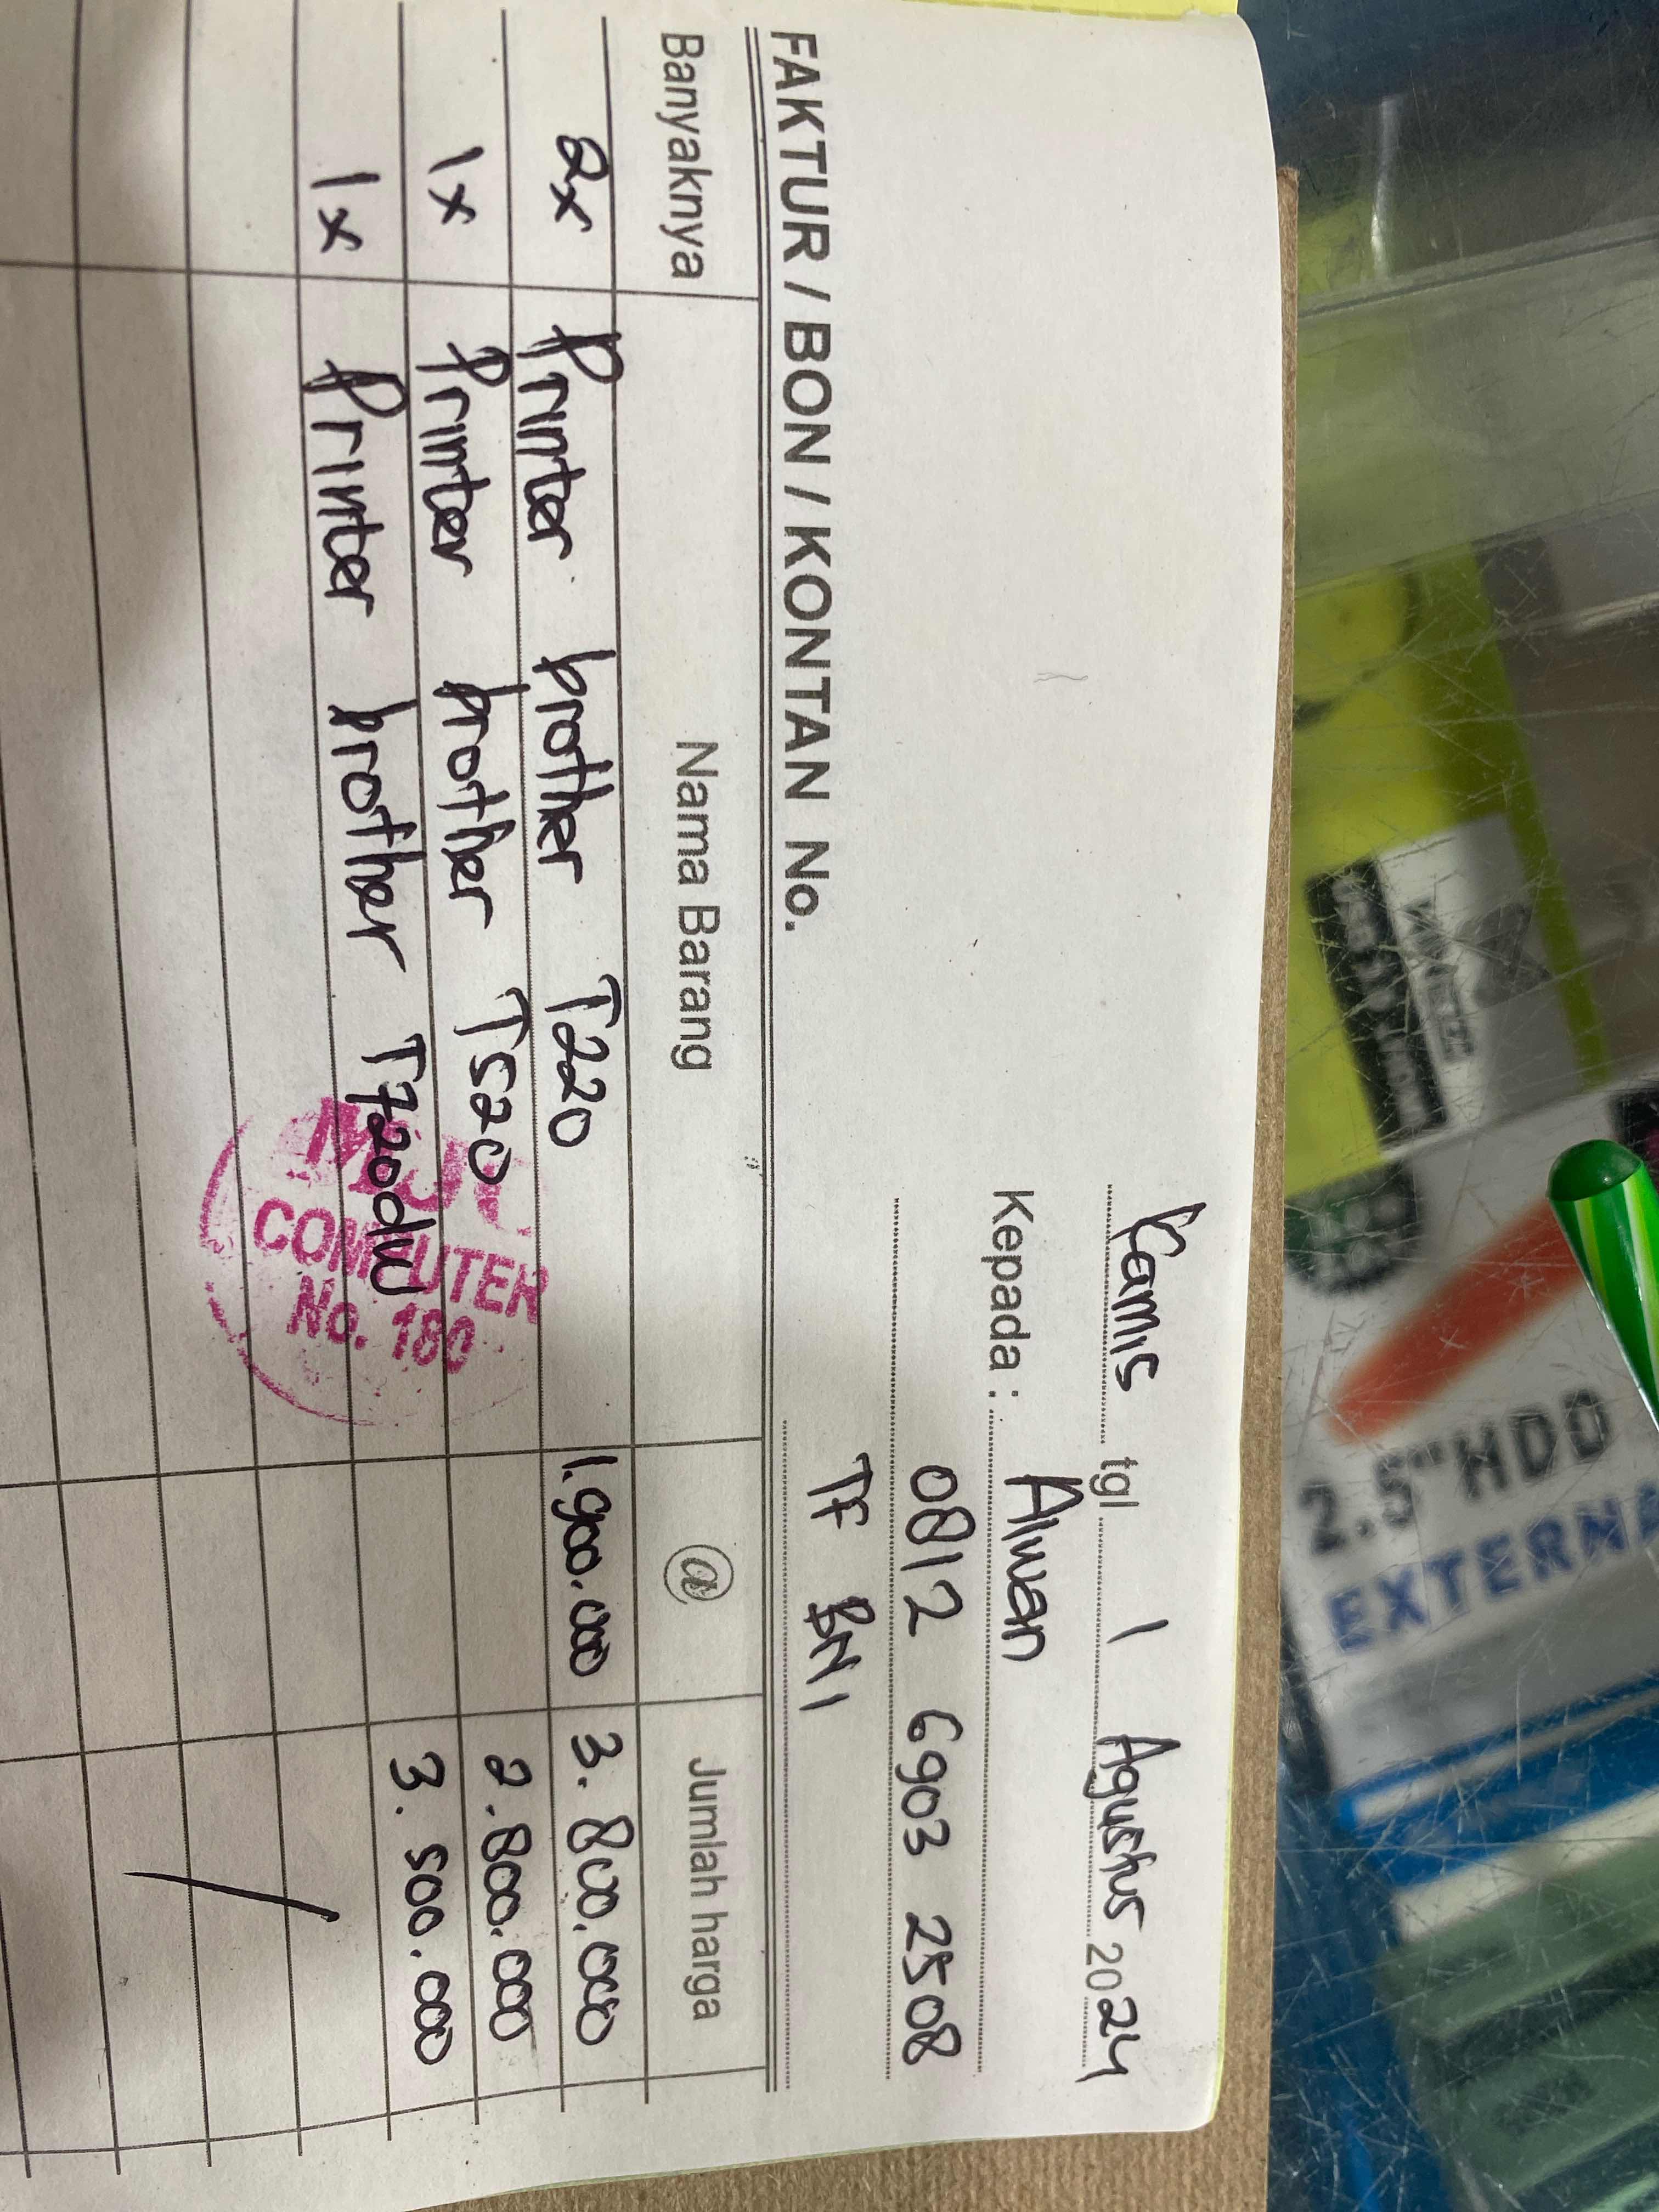 Kamis tgl 1 Agustus 2024
Kepada : Alwan
0812 6903 2508
TF BNI
FAKTUR / BON / KONTAN No.
Banyaknya Nama Barang @ Jumlah harga
2x Printer brother T220 1.900.000 3.800.000
1x Printer brother T520 2.800.000
1x Printer brother T720dw 3.500.000
COMPUTER
No. 180
2.5" HDD
EXTERNA